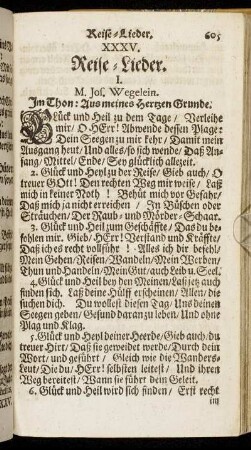 Reise-Lieder. 605
XXXV.
Reise-Lieder.
I.
M. Jos. Wegelein.
Im Thon: Aus meines Hertzen Grunde.
Glück und Heil zu dem Tage / Verleihe
mir / O HErr! Abwende dessen Plage:
Dein Seegen zu mir kehr / Damit mein
Ausgang heut / Und alles / so sich wende / Daß An-
fang / Mittel / Ende / Sey glücklich allezeit.
2. Glück und Heyl zu der Reise / Gieb auch / O
treuer GOtt! Den rechten Weg mir weise / Laß
mich in keiner Noth! Behüt mich vor Gefahr /
Daß mich ja nicht erreichen / In Büschen oder
Sträuchen / Der Raub- und Mörder-Schaar.
3. Glück und Heil zum Geschäffte / Das du be-
fohlen mir. Gieb / HErr! Verstand und Kräffte /
Daß ich es recht vollführ! Alles ich dir befehl /
Mein Gehen / Reisen / Wandeln / Mein Werben /
Thun und Handeln / Mein Gut / auch Leib u. Seel.
4. Glück und Heil bey den Meinen / Laß jetz auch
finden sich. Laß deine Hülff erscheinen / Allen / die
suchen dich. Du wollest diesen Tag / Uns deinen
Seegen geben / Gesund daran zu leben / Und ohne
Plag und Klag.
5. Glück und Heyl deiner Heerde / Gieb auch / du
treuer Hirt / Daß sie geweidet werde / Durch dein
Wort / und geführt / Gleich wie die Wanders-
Leut / Die du / HErr! selbsten leitest / Und ihren
Weg bereitest / Wann sie führt dein Geleit.
6. Glück und Heil wird sich finden / Erst recht
im